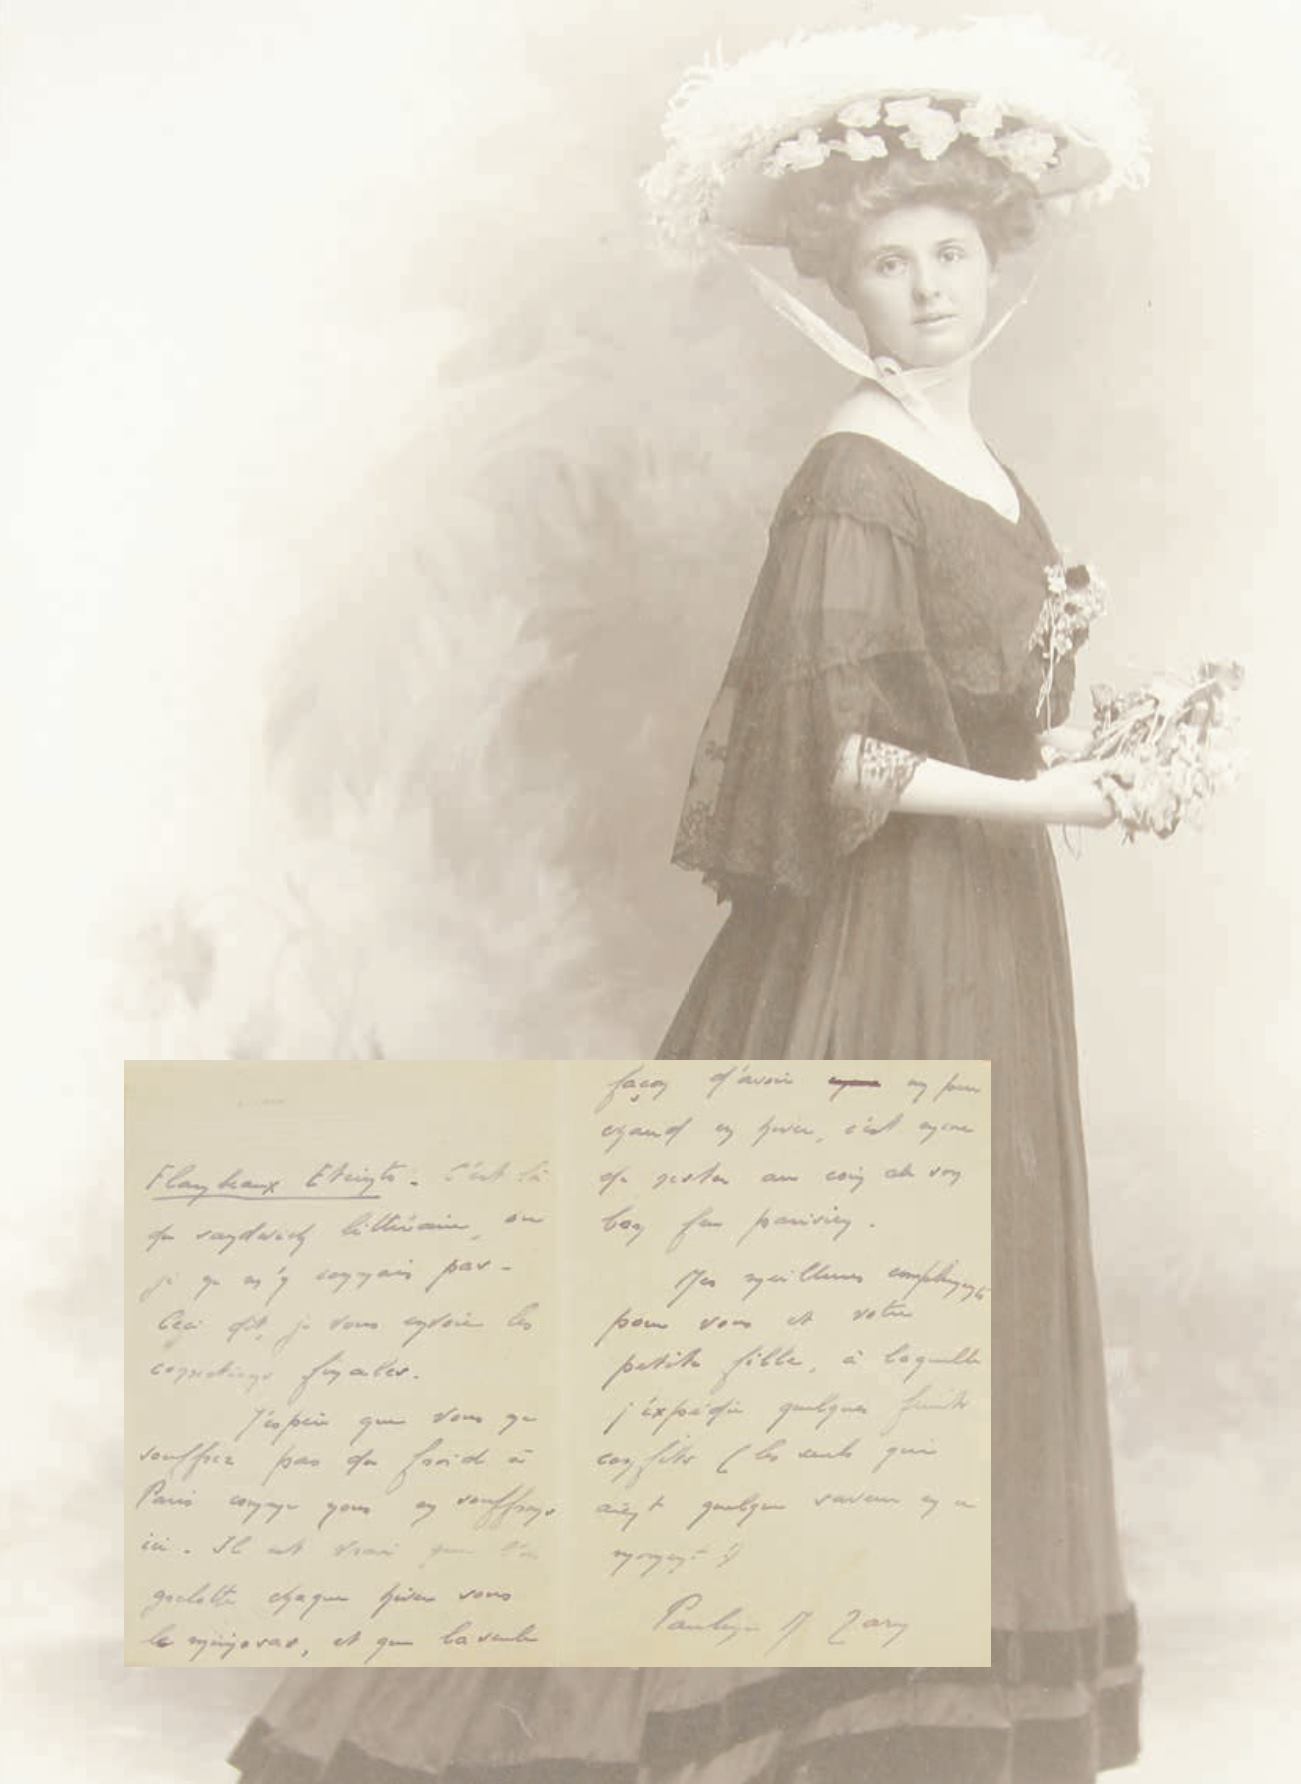 Flambeaux Eteints. C'est là
du sandwich littéraire, ou
je ne m'y connais pas.
Ceci dit, je vous envoie les
corrections finales.
J'espère que vous ne
souffrez pas du froid à
Paris comme nous en souffrons
ici. Il est vrai que l'on
grelotte chaque hiver sous
le mimosas, et que la seule
façon d'avoir un peu
chaud en hiver, c'est encore
de rester au coin de son
bon feu parisien.
Mes meilleurs compliments
pour vous et votre
petite fille, à laquelle
j'expédie quelques fruits
confits (les seuls qui
aient quelque saveur en ce
moment !)
Paule M Tarn